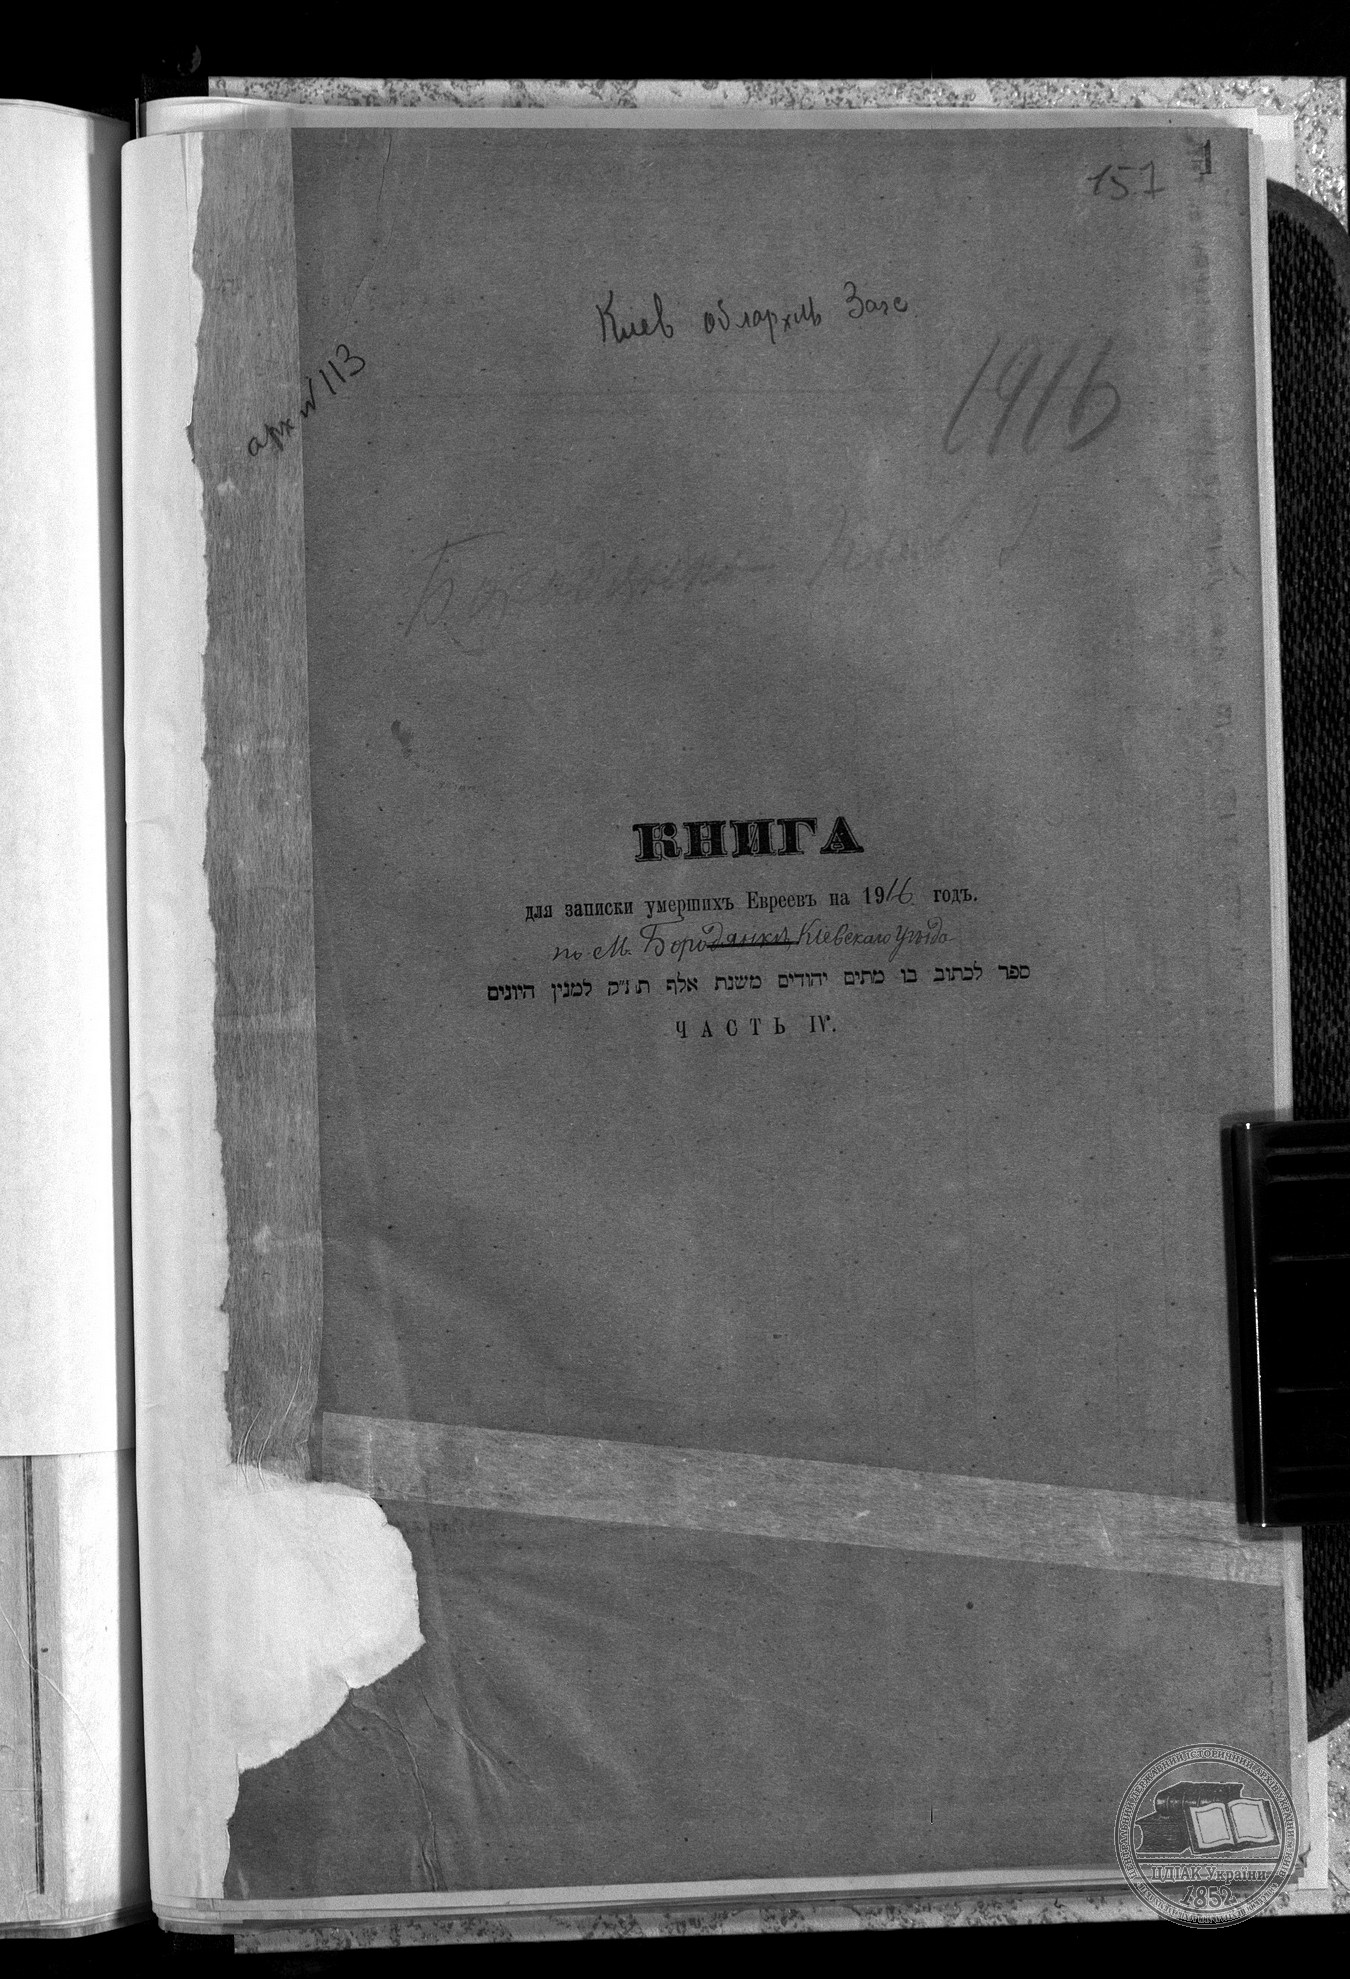 157
Киев облархив Загс
арх № 113
1916
Бородянка
КНИГА
для записки умершихъ Евреевъ на 1916 годъ.
по м. Бородянки, Кіевскаго уѣзда
ספר לכתוב בו מתים יהודים משנת אלף ת״ק למנין היונים
ЧАСТЬ IV.
ЦДІАК України
1852